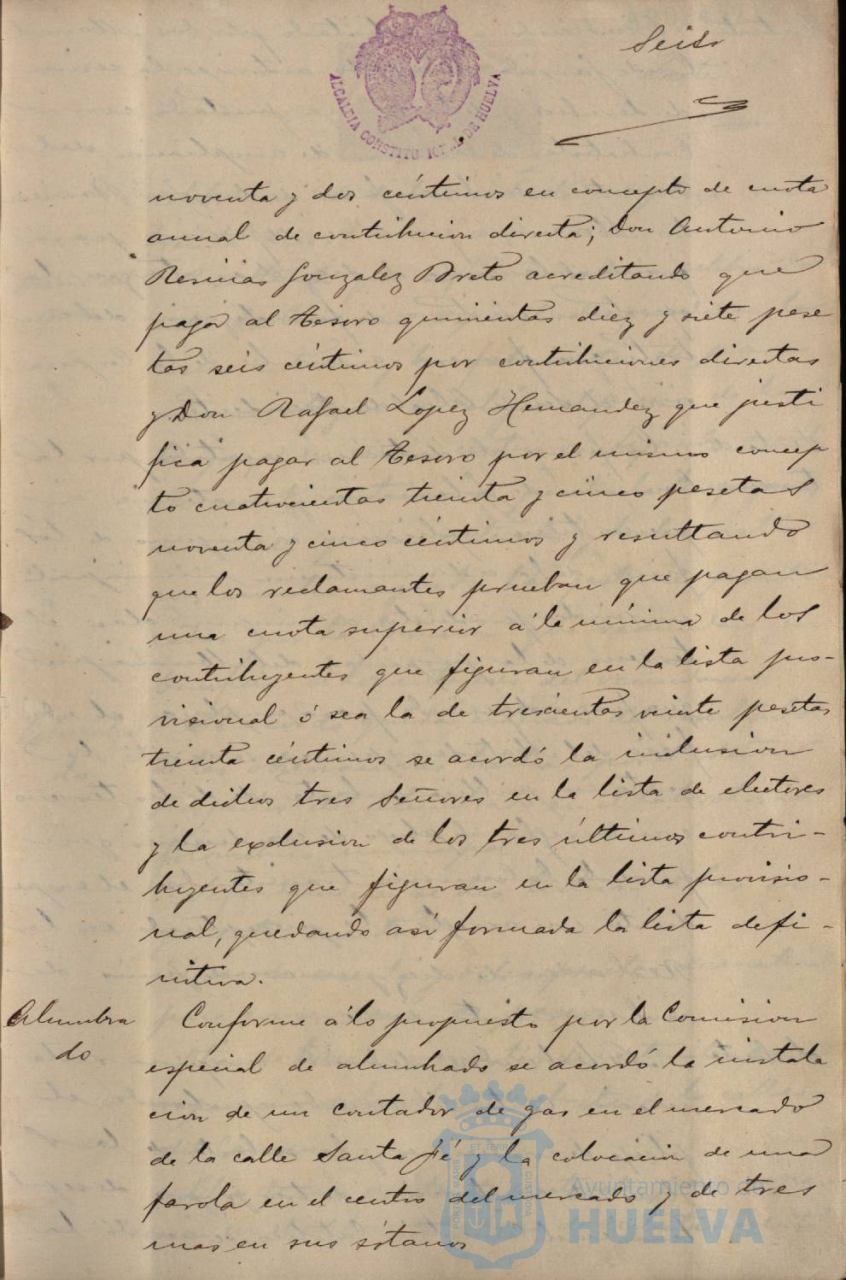 Seis
ALCALDIA CONSTITUCIONAL DE HUELVA
noventa y dos céntimos en concepto de cuota
anual de contribucion directa; Don Antonio
González Prieto acreditando que
paga al Tesoro quinientas diez y siete pese
tas seis céntimos por contribuciones directas
y Don Rafael Lopez Hernandez que justi
fica pagar al Tesoro por el mismo concep
to cuatrocientas treinta y cinco pesetas
noventa y cinco céntimos y resultando
que los reclamantes prueban que pagan
una cuota superior á la mínima de los
contribuyentes que figuran en la lista pro-
visional ó sea la de trescientas veinte pesetas
treinta céntimos se acordó la inclusion
de dichos tres Señores en la lista de electores
y la exclusion de los tres últimos contri-
buyentes que figuran en la lista provisio-
nal, quedando así formada la lista defi-
nitiva.
Alumbra
do
Conforme á lo propuesto por la Comision
especial de alumbrado se acordó la instala
cion de un contador de gas en el mercado
de la calle Santa Fé y la colocacion de una
farola en el centro del mercado y de tres
mas en sus sótanos
Ayuntamiento de
HUELVA